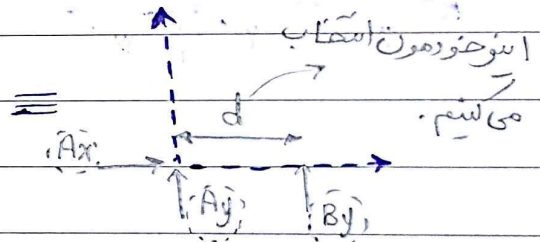 اینو خودمون انتخاب
می‌کنیم.
d
Ax
Ay
By